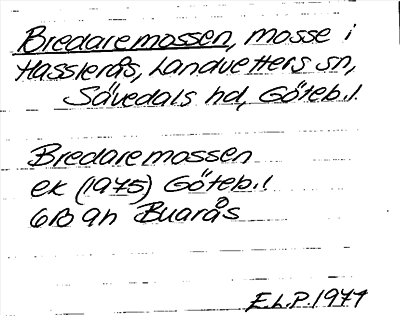 Bredaremossen, mosse i
Hasslerås, Landvetters sn,
Sävedals hd, Göteb.l.
Bredaremossen
ek (1975) Göteb.l
6B 9h Buarås
E.L.P. 1977